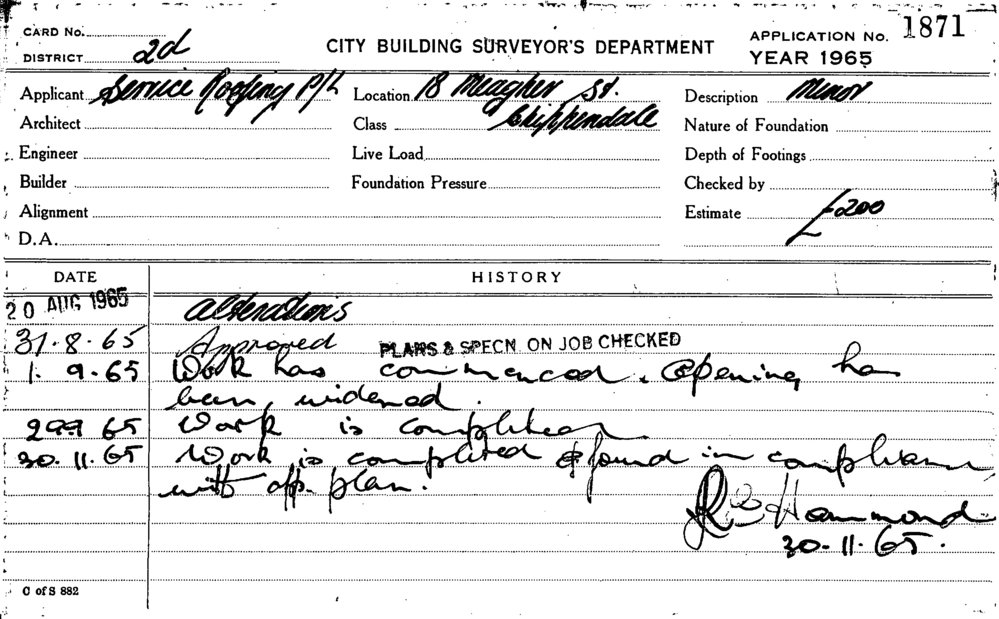 CARD No.
DISTRICT 2d
CITY BUILDING SURVEYOR'S DEPARTMENT
APPLICATION No. 1871
YEAR 1965
Applicant Service Roofing P/L
Location 18 Meagher St.
Chippendale
Description Minor
Architect
Class
Nature of Foundation
Engineer
Live Load
Depth of Footings
Builder
Foundation Pressure
Checked by
Alignment
Estimate £200
D.A.
DATE HISTORY
20 AUG 1965 Alterations
31.8.65 Approved PLANS & SPECN. ON JOB CHECKED
1.9.65 Work has commenced. Opening has
been widened.
65 Work is completed
30.11.65 Work is completed & found in compliance
with app. plan.
Hammond
30.11.65.
C of S 882